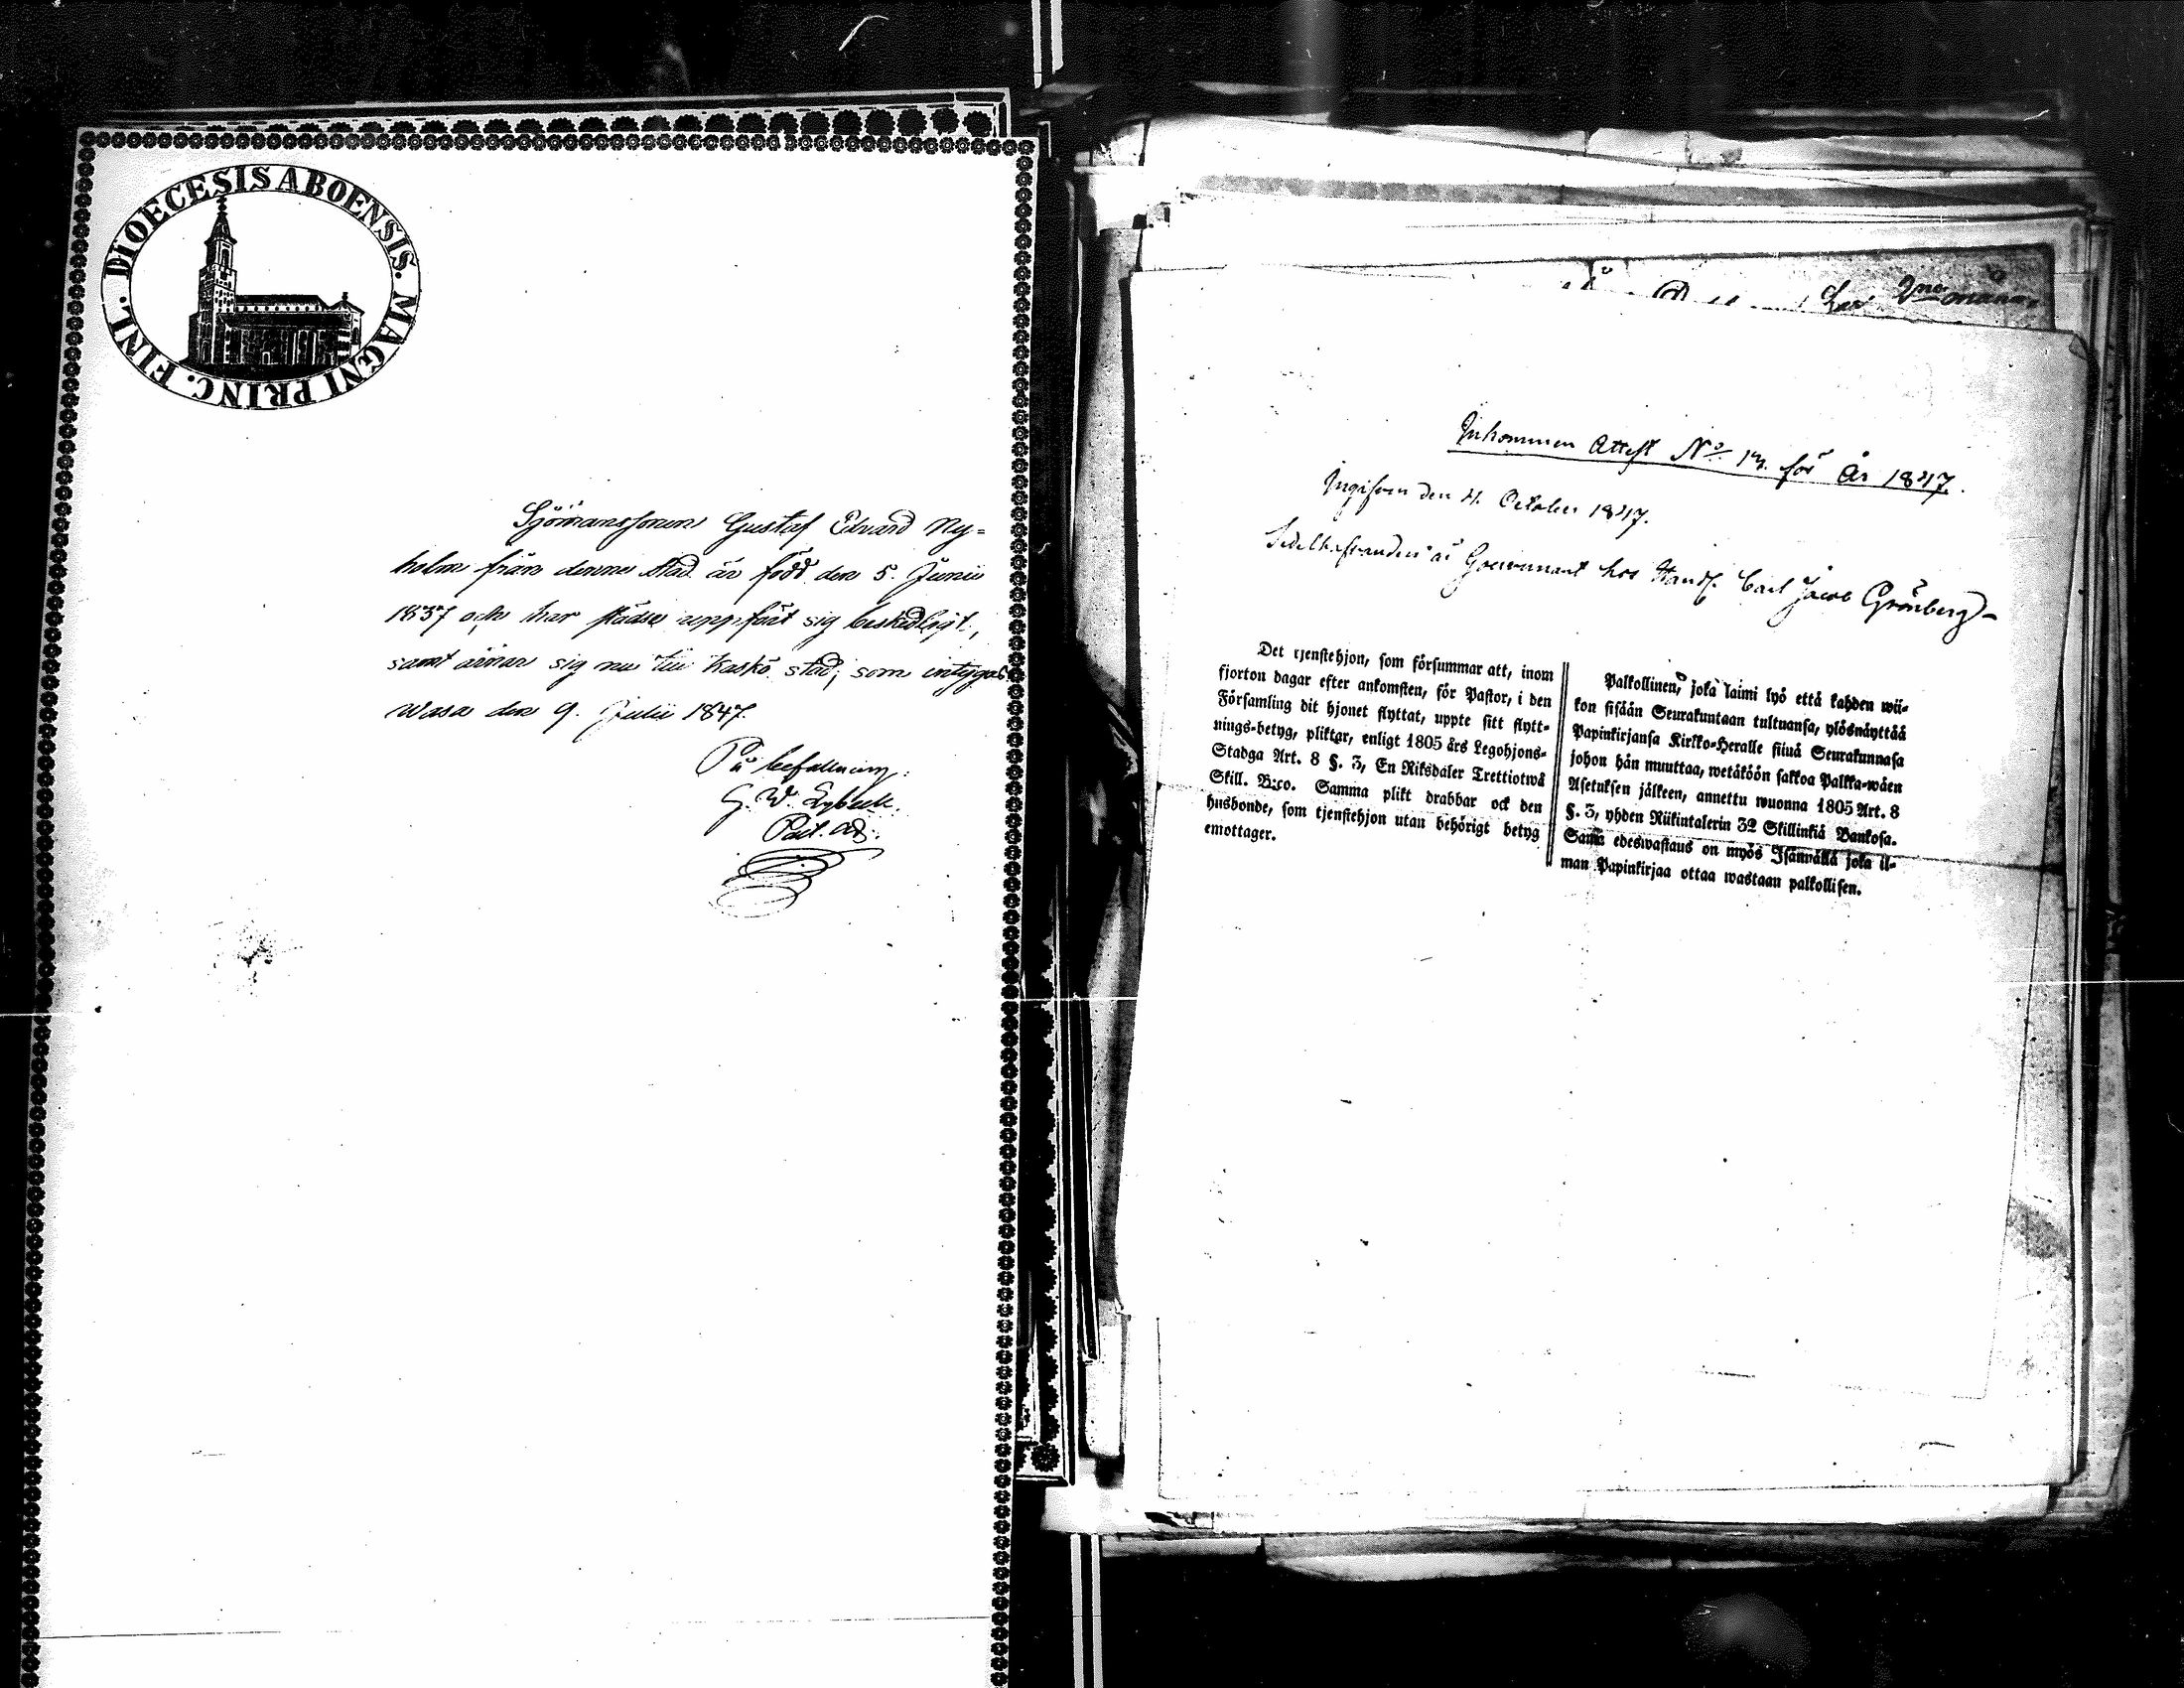 DIOECESIS ABOENSIS. MAGNI PRINC. FINL.
Sjömanssonen Gustaf Edvard Ny=
holm från denna stad är född den 5. Junii
1837 och har städse uppfört sig beskedligt,
samt ärnar sig nu till Kaskö stad, som intygas
Wasa den 9. Julii 1847.
På befallning:
G. W. Lybeck.
Past. adj.
Inkommen Attest No 13. för År 1847.
Ingifven den 4. October 1847.
är hos Carl Jacob Grönberg-
Det tjenstehjon, som försummar att, inom
fjorton dagar efter ankomsten, för Pastor, i den
Församling dit hjonet flyttat, uppte sitt flytt-
nings-betyg, pliktar, enligt 1805 års Legohjons-
Stadga Art. 8 §. 3, En Riksdaler Trettiotwå
Skill. B:co. Samma plikt drabbar ock den
husbonde, som tjenstehjon utan behörigt betyg
emottager.
Palkollinen, joka laimi lyö että kahden wii-
kon sisään Seurakuntaan tultuansa, ylösnäyttää
Papinkirjansa Kirkko-Heralle siinä Seurakunnasa
johon hän muuttaa, wetäköön sakkoa Palkka-wäen
Asetuksen jälkeen, annettu wuonna 1805 Art. 8
§. 3, yhden Riikintalerin 32 Skillinkiä Bankosa.
Sama edeswastaus on myös Isännällä joka il-
man Papinkirjaa ottaa wastaan palkollisen.